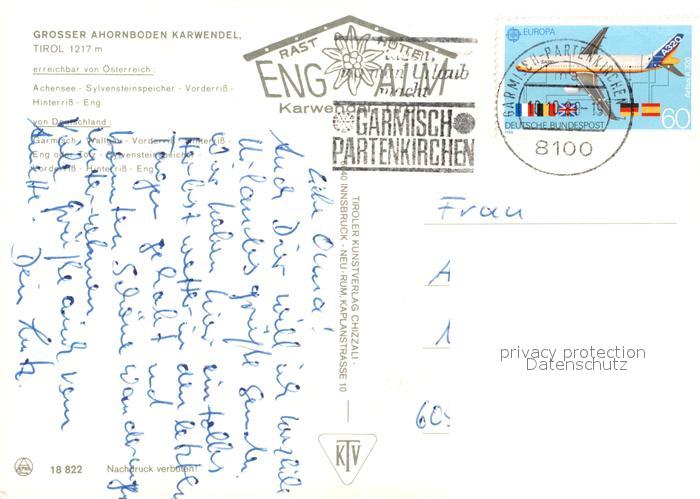 GROSSER AHORNBODEN KARWENDEL,
TIROL 1217 m
erreichbar von Österreich:
Achensee - Sylvensteinspeicher - Vorderriß -
Hinterriß - Eng
von Deutschland:
Garmisch - Wallgau - Vorderriß - Hinterriß -
Eng oder Tölz - Sylvensteinspeicher -
Vorderriß - Hinterriß - Eng
RAST HÜTTEN
ENG ALM
Karwendel
man Urlaub
macht
GARMISCH
PARTENKIRCHEN
GARMISCH-PARTENKIRCHEN
8100
EUROPA
A320
Airbus A320
DEUTSCHE BUNDESPOST
60
1988
Liebe Oma!
Auch Dir will ich herzliche
Urlaubsgrüße senden.
Wir haben hier ein tolles
Herbstwetter in den letzten
Tagen gehabt und
konnten schöne Wanderungen
unternehmen
Viele Grüße auch von
Dein
TIROLER KUNSTVERLAG CHIZZALI -
INNSBRUCK - NEU-RUM, KAPLANSTRASSE 10
Frau
A
1
60
privacy protection
Datenschutz
KTV
18 822 Nachdruck verboten!